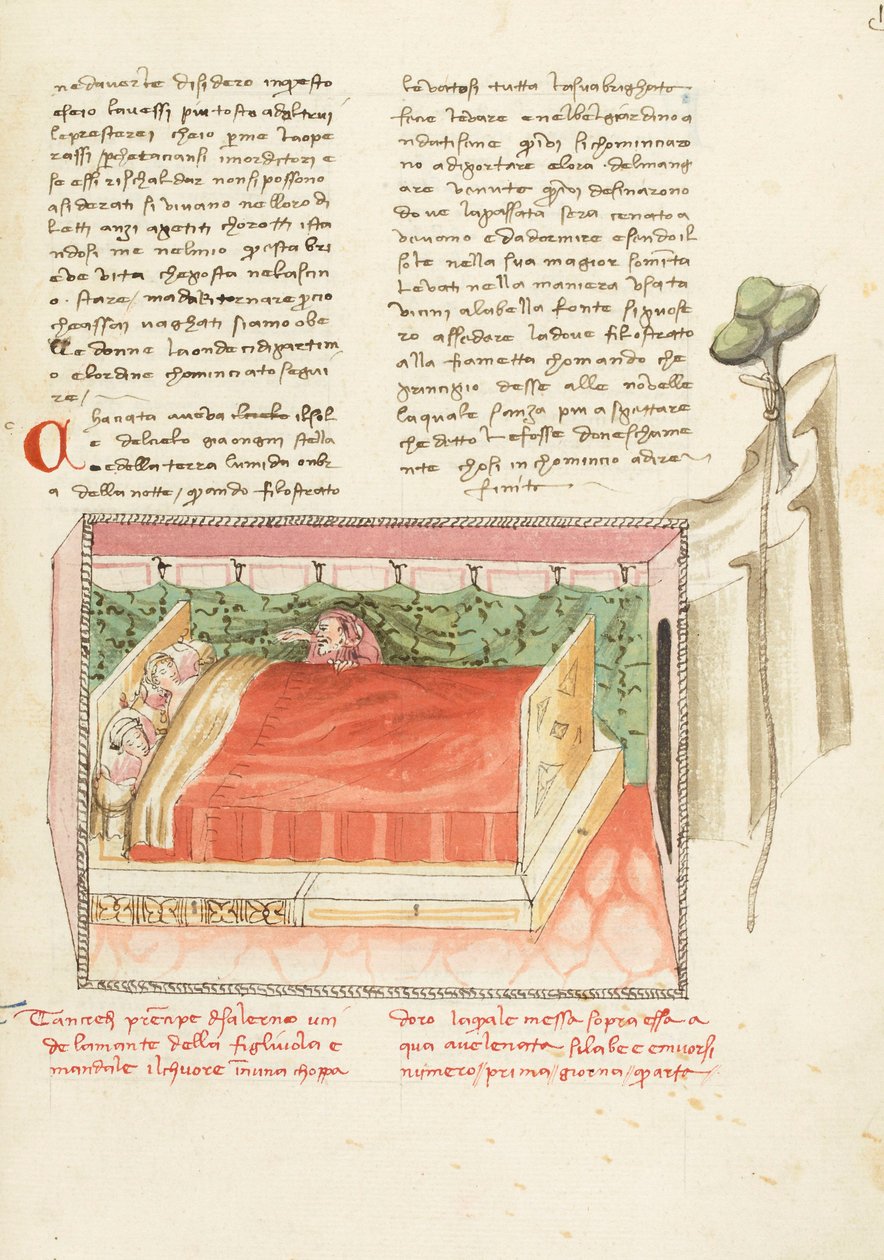 ne daverle disidero in questo
e seio lavessi piu tosto adaltrui
le presterei cheio per me laope
rassi perche tacciansi i morditori e
se essi rischaldar non si possono
asiderati si vivano nelloro di
letti anzi apetiti chorotti ista
ndosi me nelmio questa bri
eve vita che posta ne lascin
o stare ma da ritornare percio
che assai vaghati siamo o be
lle donne la onde ci dipartim
o e lordine chominciato segui
re
Chacciata aveva il sol
e del cielo gia ongni stella
e della terra lumida onbr
a della notte quando filostrato
levatosi tutta la sua brighata
fece levare e nel bel giardino a
ndatisene quivi si chominciaro
no a diportare e lora del mang
are venuta quivi desinarono
dove la passata sera cenato a
vevano e da dormire esendo il
sole nella sua magior somita
levati nella maniera usata
vicini a la bella fonte si puose
ro assedere la dove filostrato
alla fiametta chomando che
principio desse alle novelle
la quale sanza piu aspettare
che detto le fosse doneschame
nte chosi inchomincio a dire
finito
Tancredi prencipe di salerno ucci
de lamante della figliuola e
mandale il chuore in una choppa
doro la quale messa sopra essa a
qua avelenata si la bee e muorsi
numero prima giorna quarta